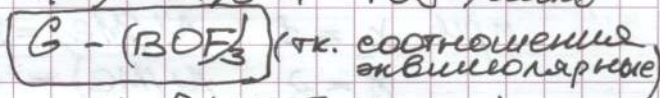 G - (BOF)₃ (тк. соотношения
эквимолярные)